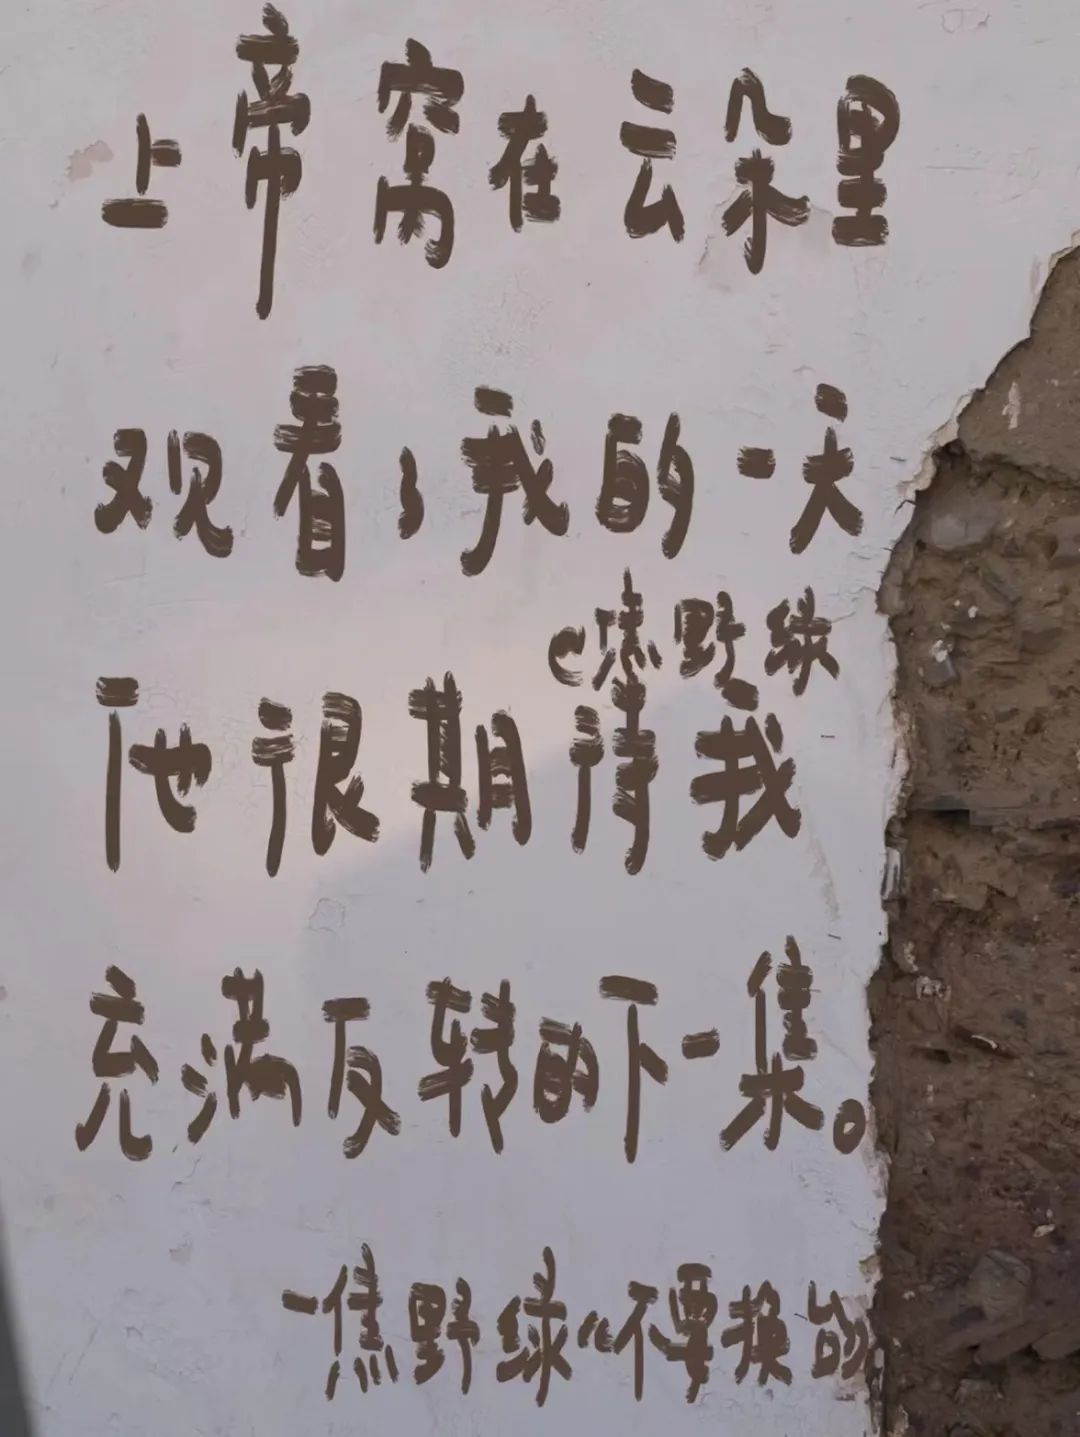 上帝窝在云朵里
观看了我的一天
@焦野绿
他很期待我
充满反转的下一集。
一焦野绿《不要换台》